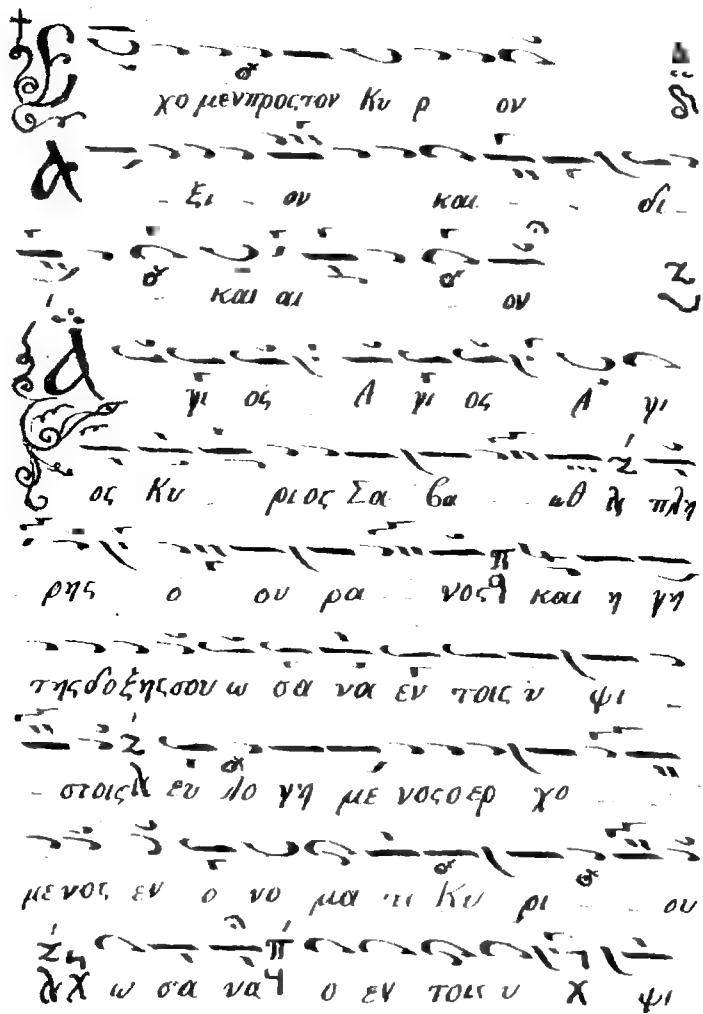 Ε χο μεν προς τον Κυ ρ ον
Α ξι ον και δι
και αι ον
Α γι ος Α γι ος Α γι
ος Κυ ριος Σα βα ωθ πλη
ρης ο ου ρα νος και η γη
της δο ξης σου ω σα να εν τοις υ ψι
στοις ευ λο γη με νος ο ερ χο
με νος εν ο νο μα τι Κυ ρι ου
ω σα να ο εν τοις υ ψι